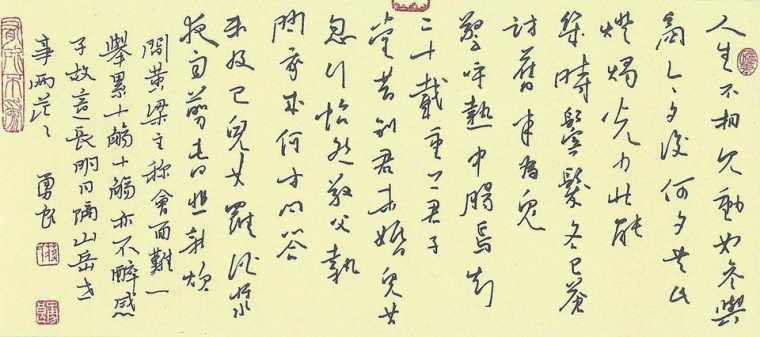 人生不相見動如參與
商今夕復何夕共此
燈燭光少壯能
幾時鬢髮各已蒼
訪舊半為鬼
驚呼熱中腸焉知
二十載重上君子
堂昔別君未婚兒女
忽行怡然敬父執
問我來何方問答
未及已兒女羅酒漿
夜雨剪春韭新炊
間黃粱主称會面難一
舉累十觴十觴亦不醉感
子故意長明日隔山岳世
事兩茫々
勇良